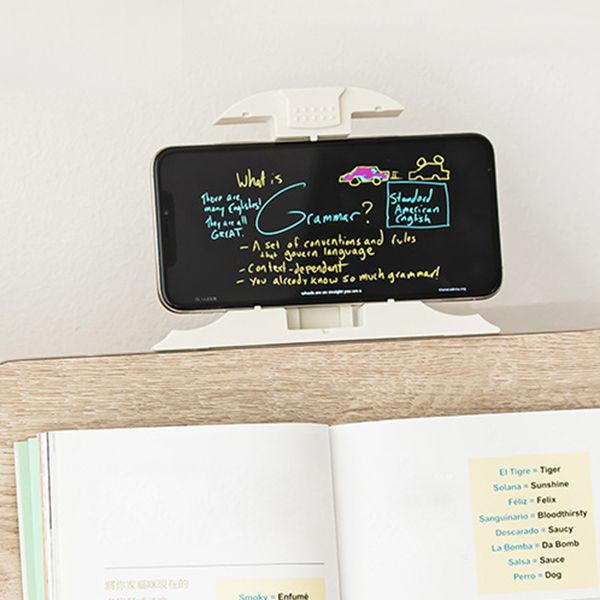 What is
Grammar?
There are
many Englishes!
They are all
GREAT.
Standard
American
English
- A set of conventions and rules
that govern language
- Context-dependent
- You already know so much grammar!
wheels are on straight you are a
El Tigre = Tiger
Solana = Sunshine
Féliz = Felix
Sanguinario = Bloodthirsty
Descarado = Saucy
La Bomba = Da Bomb
Salsa = Sauce
Perro = Dog
將你家貓咪現在的
Smoky = Enfumé